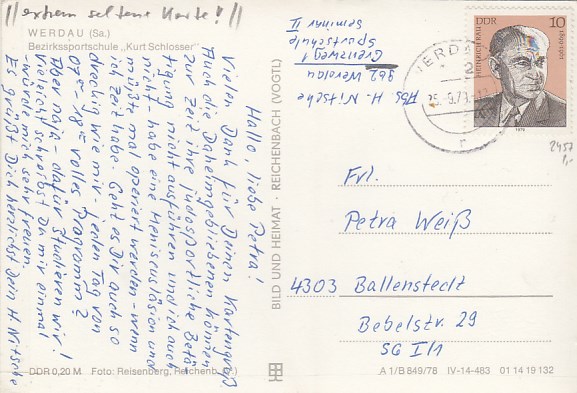 "extrem seltene Karte!"
WERDAU (Sa.)
Bezirkssportschule „Kurt Schlosser"
Hallo, liebe Petra!
Vielen Dank für Deinen Kartengruß
Auch die Daheimgebliebenen können
zur Zeit ihre judosportliche Betä-
tigung nicht ausführen und ich auch
nicht habe eine Meniskusläsion und
müßte mal operiert werden - wenn
ich Zeit habe. Geht es Dir auch so
dreckig wie mir - jeden Tag von
07°°-18°° volles Programm?
Aber naja dafür studieren wir!
Vielleicht schreibst Du mir einmal
würde mich sehr freuen
Es grüßt Dich herzlichst Dein H. Nitsche
DDR 0,20 M Foto: Reisenberg, Reichenb. (V.)
BILD UND HEIMAT · REICHENBACH (VOGTL)
Abs. H. Nitsche
962 Werdau
Grenzweg 1
Sportschule
Seminar II
DDR 10
HEINRICH RAU
1899-1961
1978
WERDAU
2457
1,-
Frl.
Petra Weiß
4303 Ballenstedt
Bebelstr. 29
SG I/1
A 1/B 849/78 IV-14-483 01 14 19 132